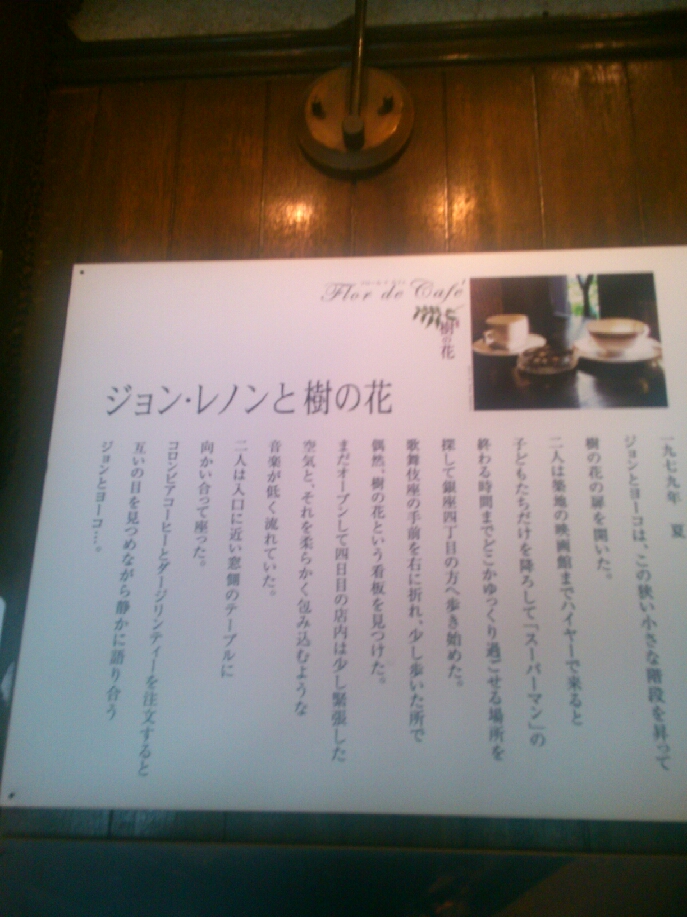 Flor de Café
樹の花
ジョン・レノンと樹の花
一九七九年　夏
ジョンとヨーコは、この狭い小さな階段を昇って
樹の花の扉を開いた。
二人は築地の映画館までハイヤーで来ると
子どもたちだけを降ろして「スーパーマン」の
終わる時間までどこかゆっくり過ごせる場所を
探して銀座四丁目の方へ歩き始めた。
歌舞伎座の手前を右に折れ、少し歩いた所で
偶然、樹の花という看板を見つけた。
まだオープンして四日目の店内は少し緊張した
空気と、それを柔らかく包み込むような
音楽が低く流れていた。
二人は入口に近い窓側のテーブルに
向かい合って座った。
コロンビアコーヒーとダージリンティーを注文すると
互いの目を見つめながら静かに語り合う
ジョンとヨーコ…。